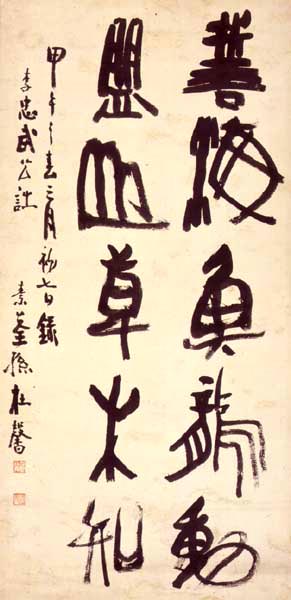 誓海魚龍動
盟山草木知
甲午之春三月初七日錄
李忠武公詩
素荃孫在馨